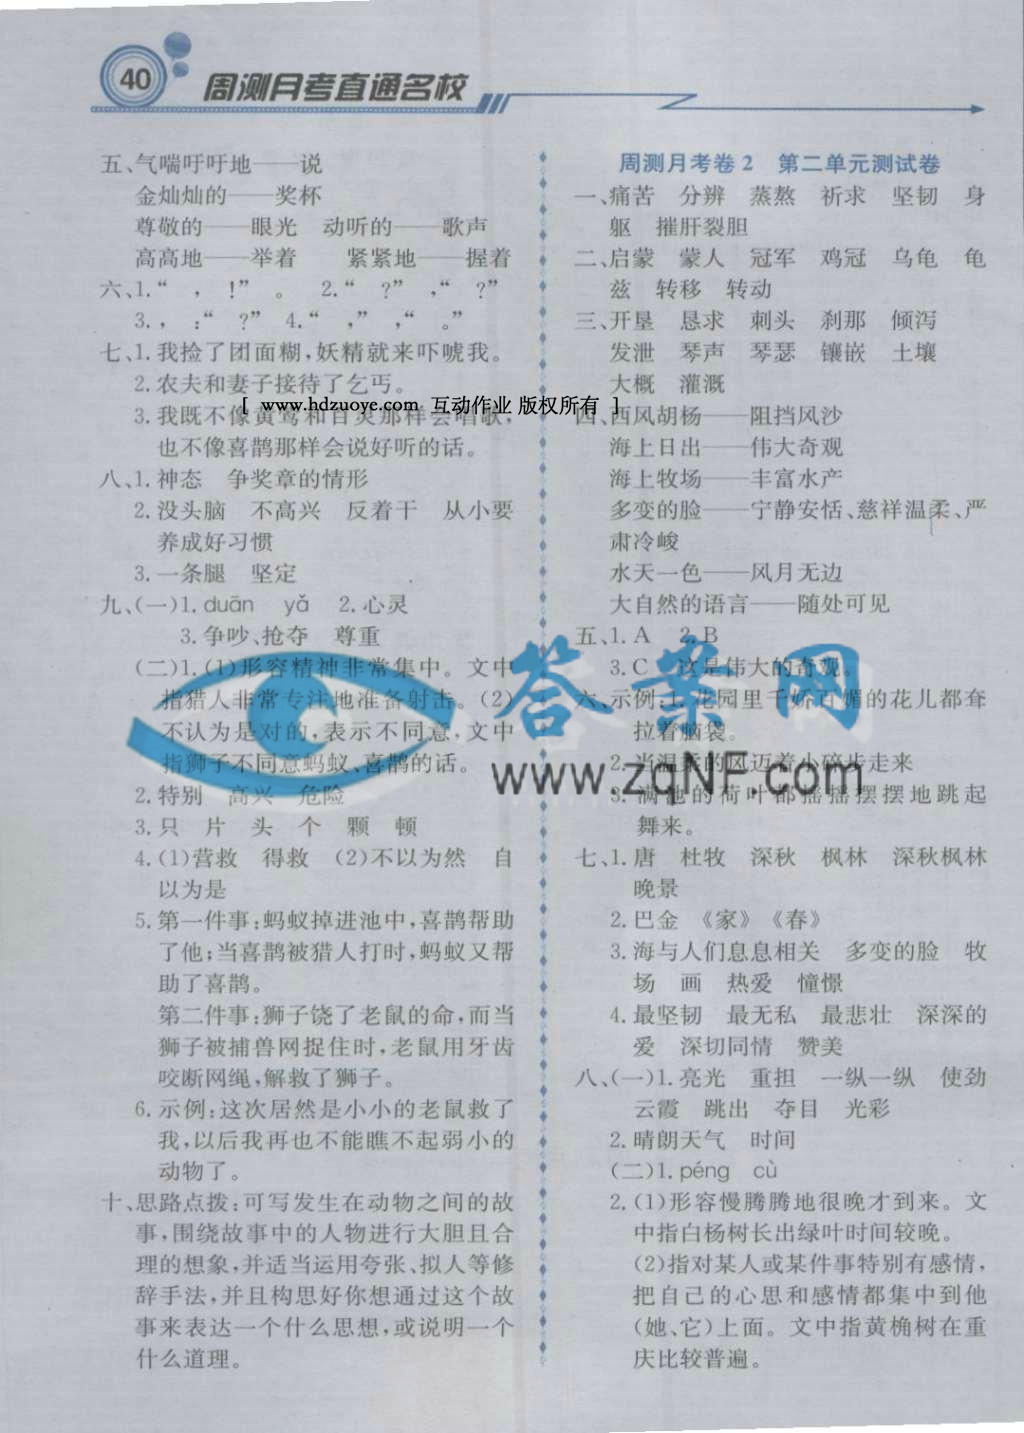 40
周测月考直通名校
五、气喘吁吁地——说
金灿灿的——奖杯
尊敬的——眼光 动听的——歌声
高高地——举着 紧紧地——握着
六、1.“ ，！” 。 2.“ ？”，“ ？”
3.，：“ ？” 4.“ ，”，“ 。”
七、1.我捡了团面糊，妖精就来吓唬我。
2.农夫和妻子接待了乞丐。
[ www.hdzuoye.com 互动作业 版权所有 ]
3.我既不像黄莺和百灵那样会唱歌，
也不像喜鹊那样会说好听的话。
八、1.神态 争奖章的情形
2.没头脑 不高兴 反着干 从小要
养成好习惯
3.一条腿 坚定
九、(一)1.duān yǎ 2.心灵
3.争吵、抢夺 尊重
(二)1.(1)形容精神非常集中。文中
指猎人非常专注地准备射击。(2)
不认为是对的，表示不同意，文中
指狮子不同意蚂蚁、喜鹊的话。
2.特别 高兴 危险
3.只 片 头 个 颗 顿
4.(1)营救 得救 (2)不以为然 自
以为是
5.第一件事：蚂蚁掉进池中，喜鹊帮助
了他；当喜鹊被猎人打时，蚂蚁又帮
助了喜鹊。
第二件事：狮子饶了老鼠的命，而当
狮子被捕兽网捉住时，老鼠用牙齿
咬断网绳，解救了狮子。
6.示例：这次居然是小小的老鼠救了
我，以后我再也不能瞧不起弱小的
动物了。
十、思路点拨：可写发生在动物之间的故
事，围绕故事中的人物进行大胆且合
理的想象，并适当运用夸张、拟人等修
辞手法，并且构思好你想通过这个故
事来表达一个什么思想，或说明一个
什么道理。
周测月考卷2 第二单元测试卷
一、痛苦 分辨 蒸熬 祈求 坚韧 身
躯 摧肝裂胆
二、启蒙 蒙人 冠军 鸡冠 乌龟 龟
兹 转移 转动
三、开垦 恳求 刺头 刹那 倾泻
发泄 琴声 琴瑟 镶嵌 土壤
大概 灌溉
四、西风胡杨——阻挡风沙
海上日出——伟大奇观
海上牧场——丰富水产
多变的脸——宁静安恬、慈祥温柔、严
肃冷峻
水天一色——风月无边
大自然的语言——随处可见
五、1.A 2.B
3.C 这是伟大的奇观。
六、示例：1.花园里千娇百媚的花儿都耷
拉着脑袋。
2.当温柔的风迈着小碎步走来
3.满池的荷叶都摇摇摆摆地跳起
舞来。
答案网
www.zqNF.com
七、1.唐 杜牧 深秋 枫林 深秋枫林
晚景
2.巴金 《家》《春》
3.海与人们息息相关 多变的脸 牧
场 画 热爱 憧憬
4.最坚韧 最无私 最悲壮 深深的
爱 深切同情 赞美
八、(一)1.亮光 重担 一纵一纵 使劲
云霞 跳出 夺目 光彩
2.晴朗天气 时间
(二)1.péng cù
2.(1)形容慢腾腾地很晚才到来。文
中指白杨树长出绿叶时间较晚。
(2)指对某人或某件事特别有感情，
把自己的心思和感情都集中到他
(她、它)上面。文中指黄桷树在重
庆比较普遍。